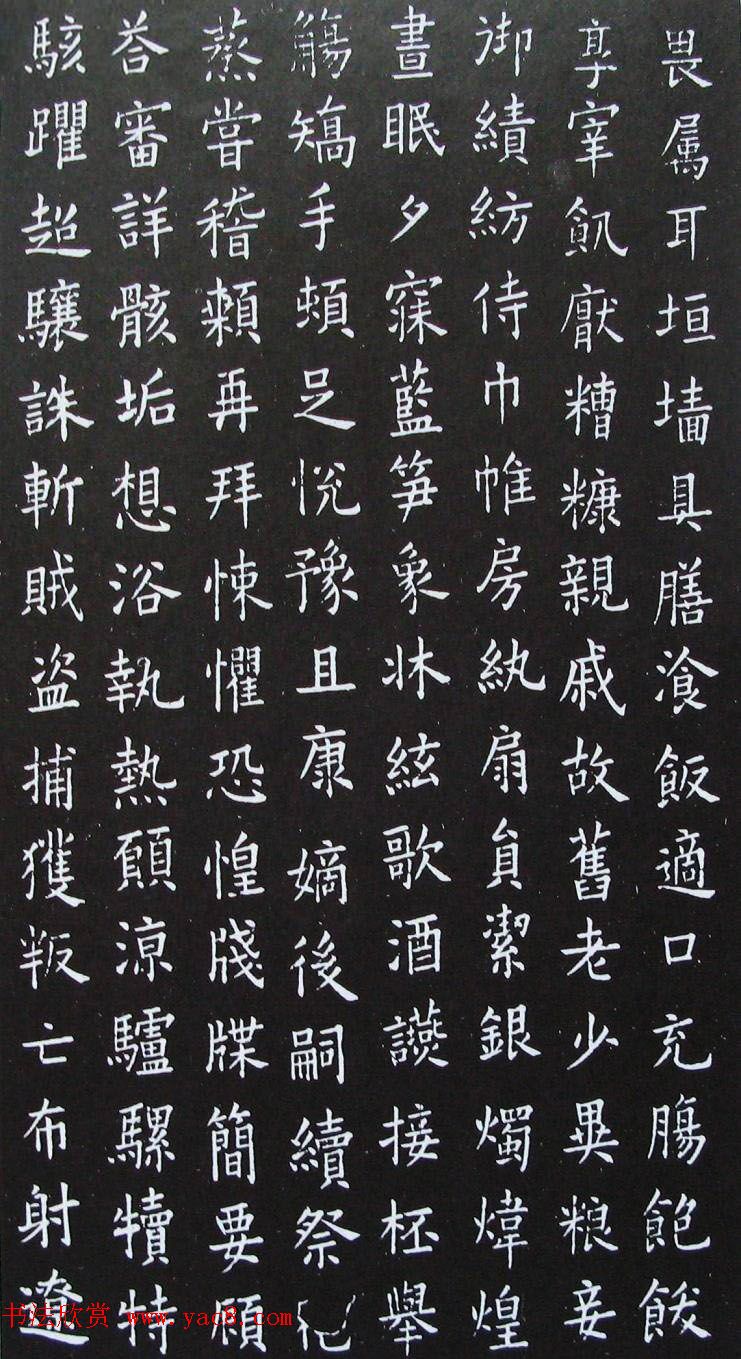 畏属耳垣墻具膳湌飯適口充腸飽飫
享宰飢厭糟糠親戚故舊老少異粮妾
御績紡侍巾帷房紈扇員潔銀燭煒煌
晝眠夕寐藍笋象牀絃歌酒讌接杯舉
觴矯手頓足悅豫且康嫡後嗣續祭祀
蒸嘗稽顙再拜悚懼恐惶牋牒簡要顧
荅審詳骸垢想浴執熱願涼驢騾犢特
駭躍超驤誅斬賊盜捕獲叛亡布射遼
书法欣赏 www.yac8.com